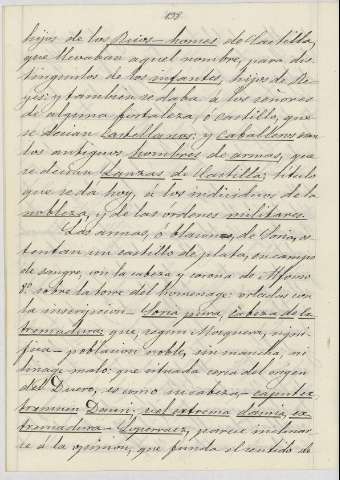 198
hijos de los Ricos-homes de Castilla,
que llevaban aquel nombre, para dis-
tinguirlos de los infantes, hijos de Re-
yes: y tambien se daba á los señores
de alguna fortaleza, ó castillo, que
se decian Castellanos: y Caballeros eran
los antiguos hombres de armas, que
se decian Lanzas de Castilla; titulo
que se dá hoy, á los individuos de la
nobleza, y de las ordenes militares.
Las armas, ó blasones, de Soria, os-
tentan un castillo de plata, en campo
de sangre, con la cabeza y corona de Alfonso
8º sobre la torre del homenage: orladas con
la inscripcion - Soria pura, Cabeza de Es-
tremadura; que, segun Mosquera, signi-
fica - poblacion noble, sin mancha, ni
linage malo: que situada cerca del origen
del Duero, es como su cabeza, - caput ex-
tremum Dauri: vel extrema daurii, ex-
tremadura - Loperraez, parece inclinar-
se á la opinion, que funda el sentido de